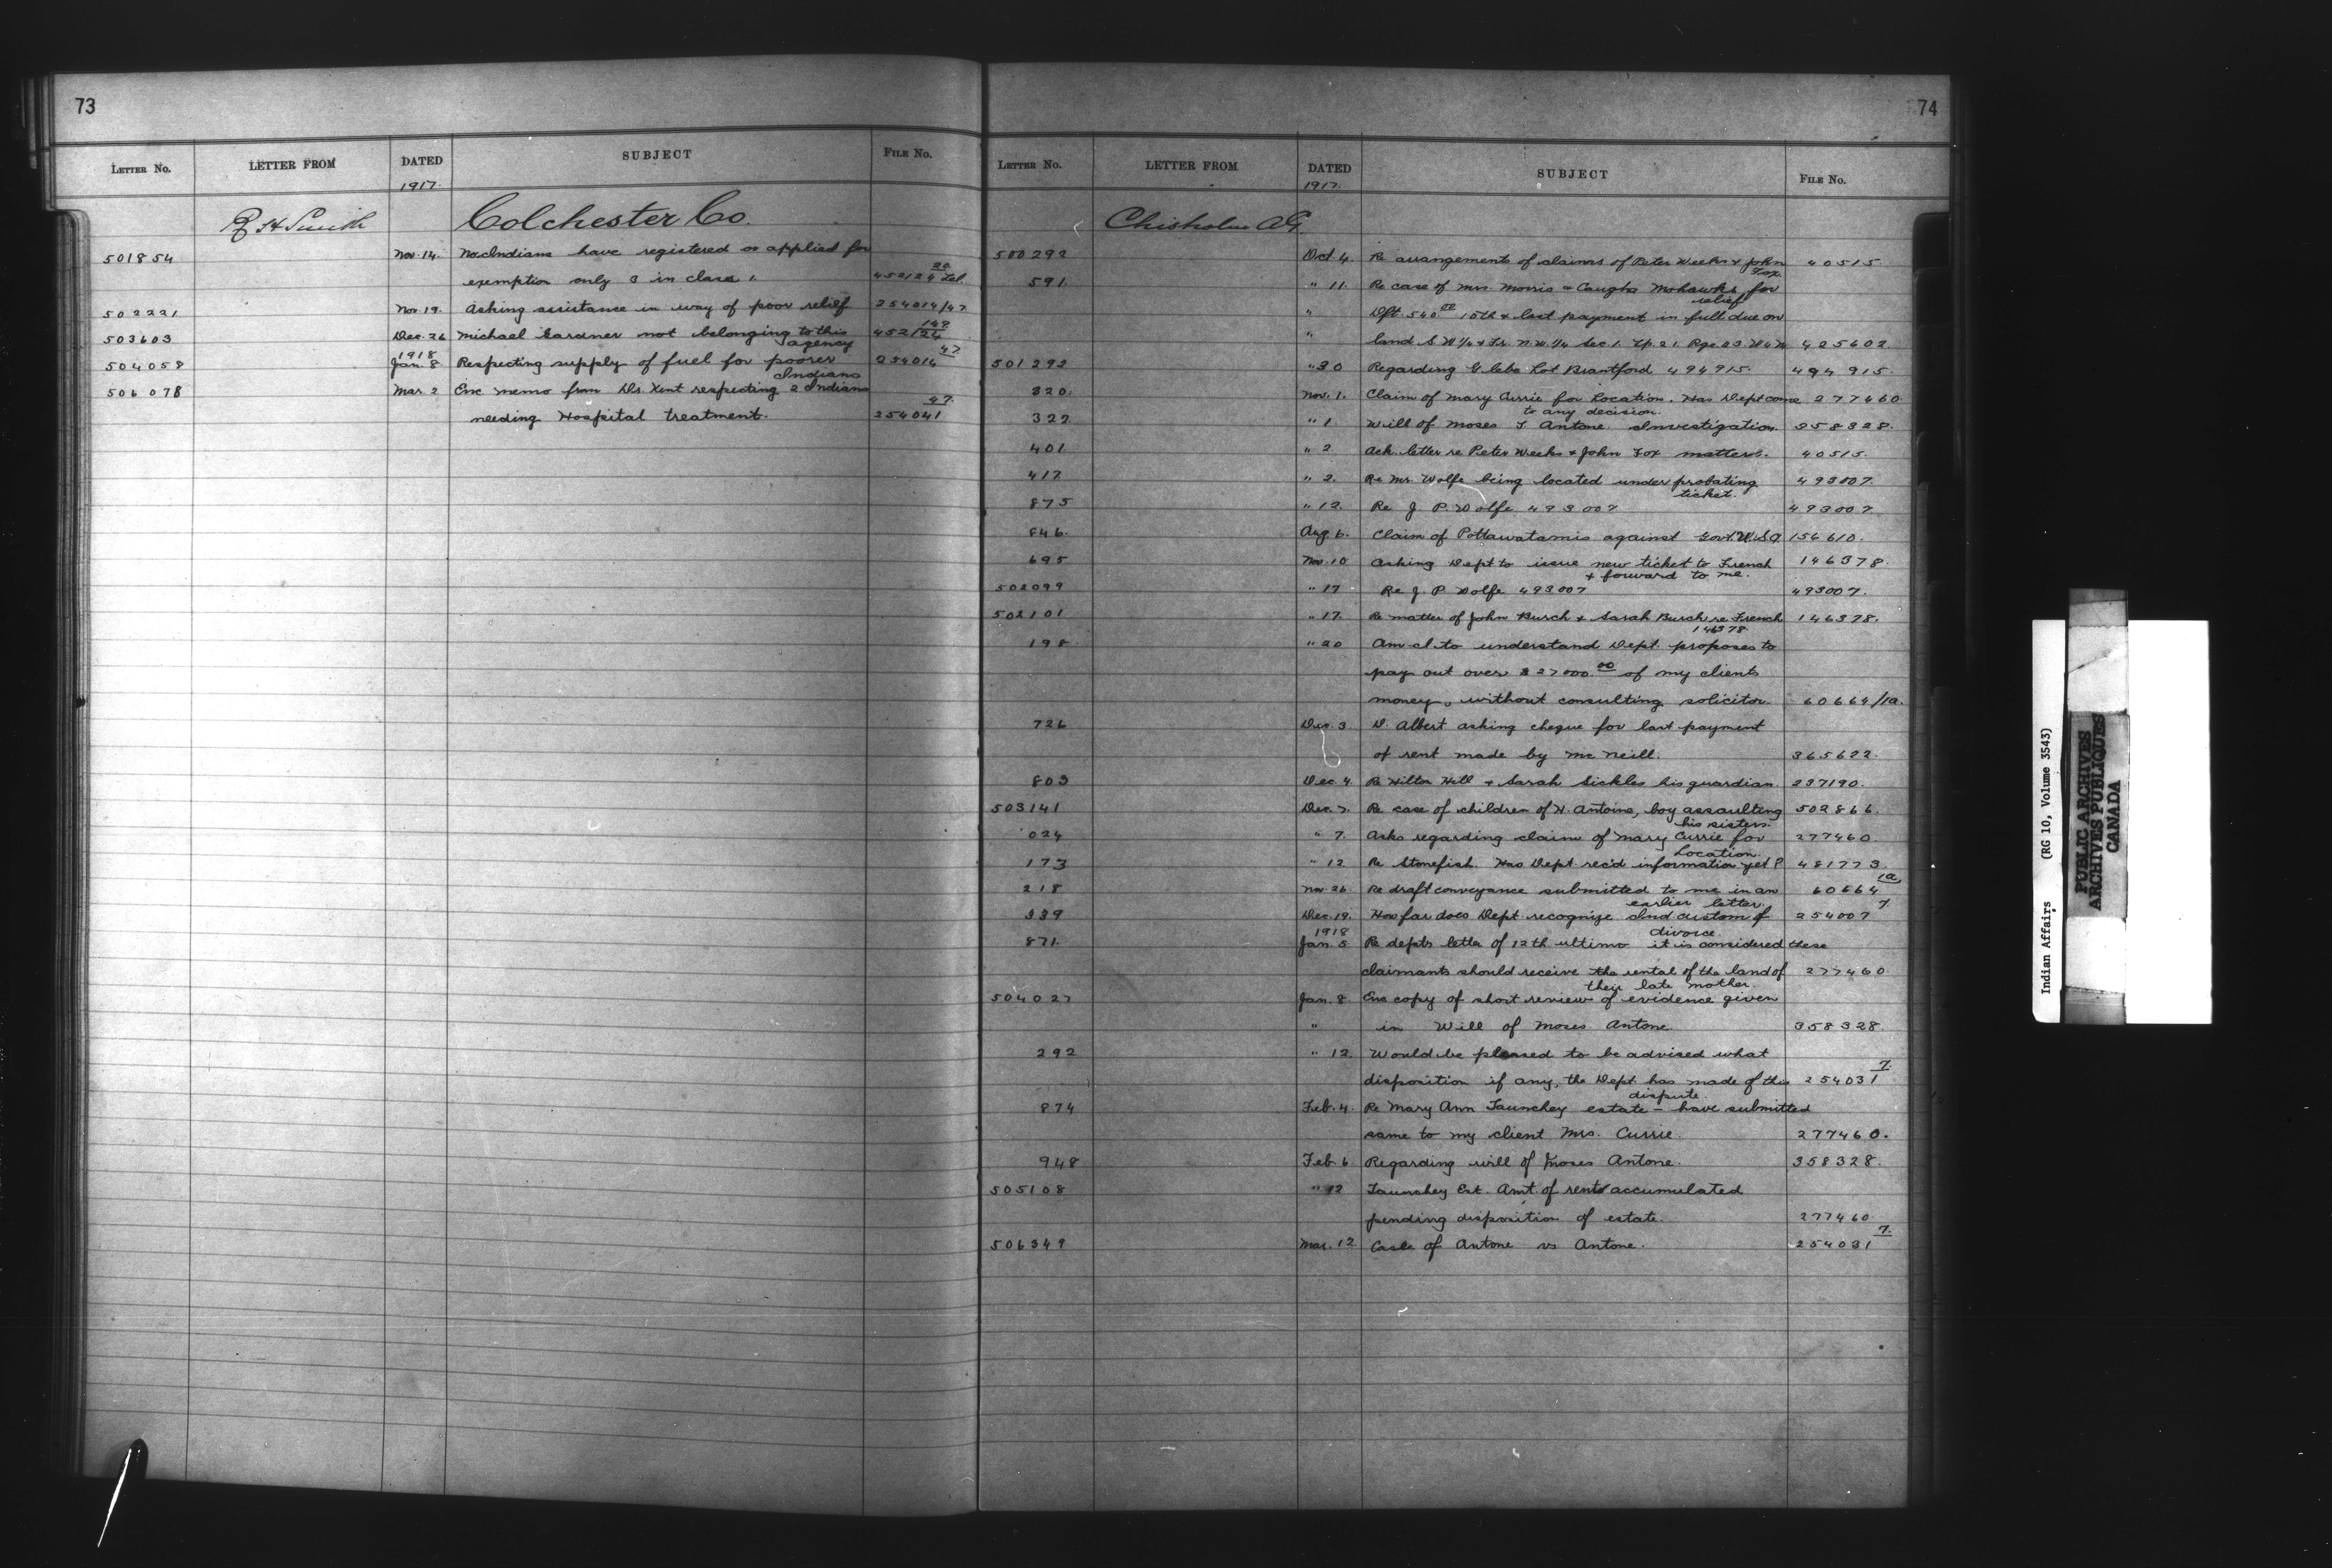 73
LETTER No. LETTER FROM DATED SUBJECT FILE No.
1917.
R H Smith Colchester Co.
501854 Nov. 14. No Indians have registered or applied for
exemption only 3 in class 1. 452124 20 Tel.
502221 Nov. 19. Asking assistance in way of poor relief 254014/47
503603 Dec. 26 Michael Gardner not belonging to this 452124 149
agency
1918
504058 Jan. 8 Respecting supply of fuel for poorer 254014 47
Indians
506078 Mar. 2 Enc memo from Drs Kent respecting 2 Indians
needing Hospital treatment. 254041 47
74
LETTER No. LETTER FROM DATED SUBJECT FILE No.
1917.
Chisholm A.G.
500292 Oct 4. Re arrangements of claims of Peter Weeks & John 40515.
Fox.
591. " 11. Re case of Mrs. Morris - Caugha Mohawks for
relief
" Dft. 540 00 10th & last payment in full due on
" land S.W 1/4 & Fr. N.W. 1/4 Sec 1. Tp. 21. Rge 23. W4M 425602.
501292 " 30 Regarding Glebe Lot Brantford 494915. 494915.
320. Nov. 1. Claim of Mary Currie for Location. Has Dept come 277460
to any decision.
322 " 1 Will of Moses T. Antone. Investigation. 358328.
401 " 2 Ack. letter re Peter Weeks & John Fox matters. 40515.
417 " 2. Re Mr. Wolfe being located under probating 493007.
ticket.
875 " 12. Re J. P. Wolfe 493007 493007
846. Aug 6. Claim of Pottawatamis against Govt. U.S.A 156610.
695 Nov. 10 Asking Dept to issue new ticket to French 146378.
& forward to me.
502099 " 17 Re J. P. Wolfe 493007 493007.
502101 " 17. Re matter of John Burch & Sarah Burch re French 146378.
146378
198 " 20 Am I to understand Dept. proposes to
pay out over $27000.00 of my clients
money, without consulting solicitor. 60664/1a.
726 Dec. 3 D. Albert asking cheque for last payment
of rent made by McNeill. 365622.
803 Dec. 4 Re Hilton Hill & Sarah Sickles his guardian. 237190.
503141 Dec. 7. Re case of children of N. Antoine, boy assaulting 502866.
his sisters.
024 " 7. Asks regarding claim of Mary Currie for 277460
Location.
173 " 12 Re Stonefish. Has Dept. rec'd information yet? 481773.
218 Nov. 26. Re draft conveyance submitted to me in an 60664 1a
earlier letter.
339 Dec. 19. How far does Dept. recognize Ind custom of 254007 7
divorce.
1918
871. Jan. 5 Re depts letter of 12th ultimo it is considered these
claimants should receive the rental of the land of 277460
their late mother.
504027 Jan. 8 Enc copy of short review of evidence given
" in Will of Moses Antone 358328.
292 " 12. Would be pleased to be advised what
disposition if any, the Dept has made of this 254031 7
dispute
874 Feb. 4. Re Mary Ann Taunchey estate - have submitted
same to my client Mrs. Currie. 277460.
948 Feb. 6 Regarding will of Moses Antone. 358328.
505108 " 12 Taunchey Est. Amt. of rents accumulated
pending disposition of estate. 277460.
506349 Mar. 12. Case of Antone vs Antone. 254031 7
Indian Affairs (RG 10, Volume 3543)
PUBLIC ARCHIVES
ARCHIVES PUBLIQUES
CANADA